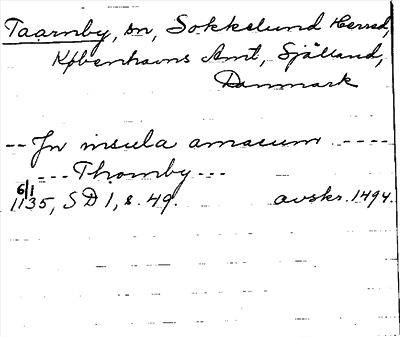 Taarnby, sn, Sokkelund Herred,
Københavns Amt, Själland,
Danmark
-- In insula amacum ----
--- Thomby ---
6/1
1135, SD1, s. 49. avskr. 1494.